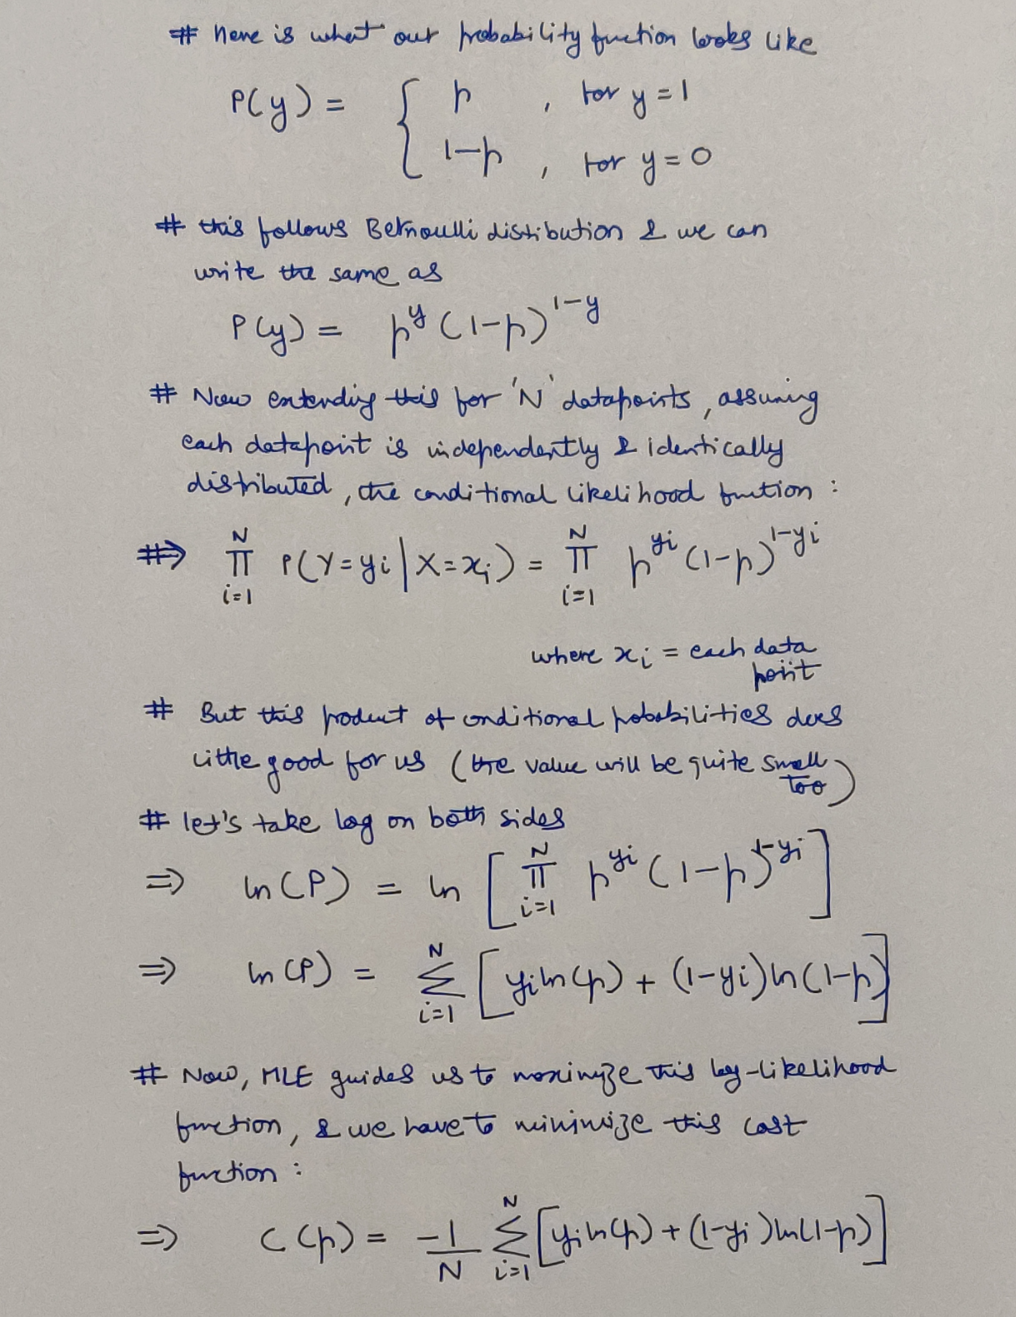 # Here is what our probability function looks like
P(y) = { p , for y = 1
1-p , for y = 0
# this follows Bernoulli distibution & we can
write the same as
P(y) = p^y (1-p)^{1-y}
# Now extending this for 'N' datapoints, assuming
each datapoint is independently & identically
distributed, the conditional likelihood function :
#⇒ ∏_{i=1}^{N} P(Y=yi | X=xi) = ∏_{i=1}^{N} p^{yi} (1-p)^{1-yi}
where xi = each data
point
# But this product of conditional probabilities does
little good for us (the value will be quite small
too)
# let's take log on both sides
⇒ ln(P) = ln [ ∏_{i=1}^{N} p^{yi} (1-p)^{1-yi} ]
⇒ ln(P) = ∑_{i=1}^{N} [ yi ln(p) + (1-yi) ln(1-p) ]
# Now, MLE guides us to maximize this log-likelihood
function, & we have to minimize this cost
function :
⇒ C(p) = -1/N ∑_{i=1}^{N} [ yi ln(p) + (1-yi) ln(1-p) ]